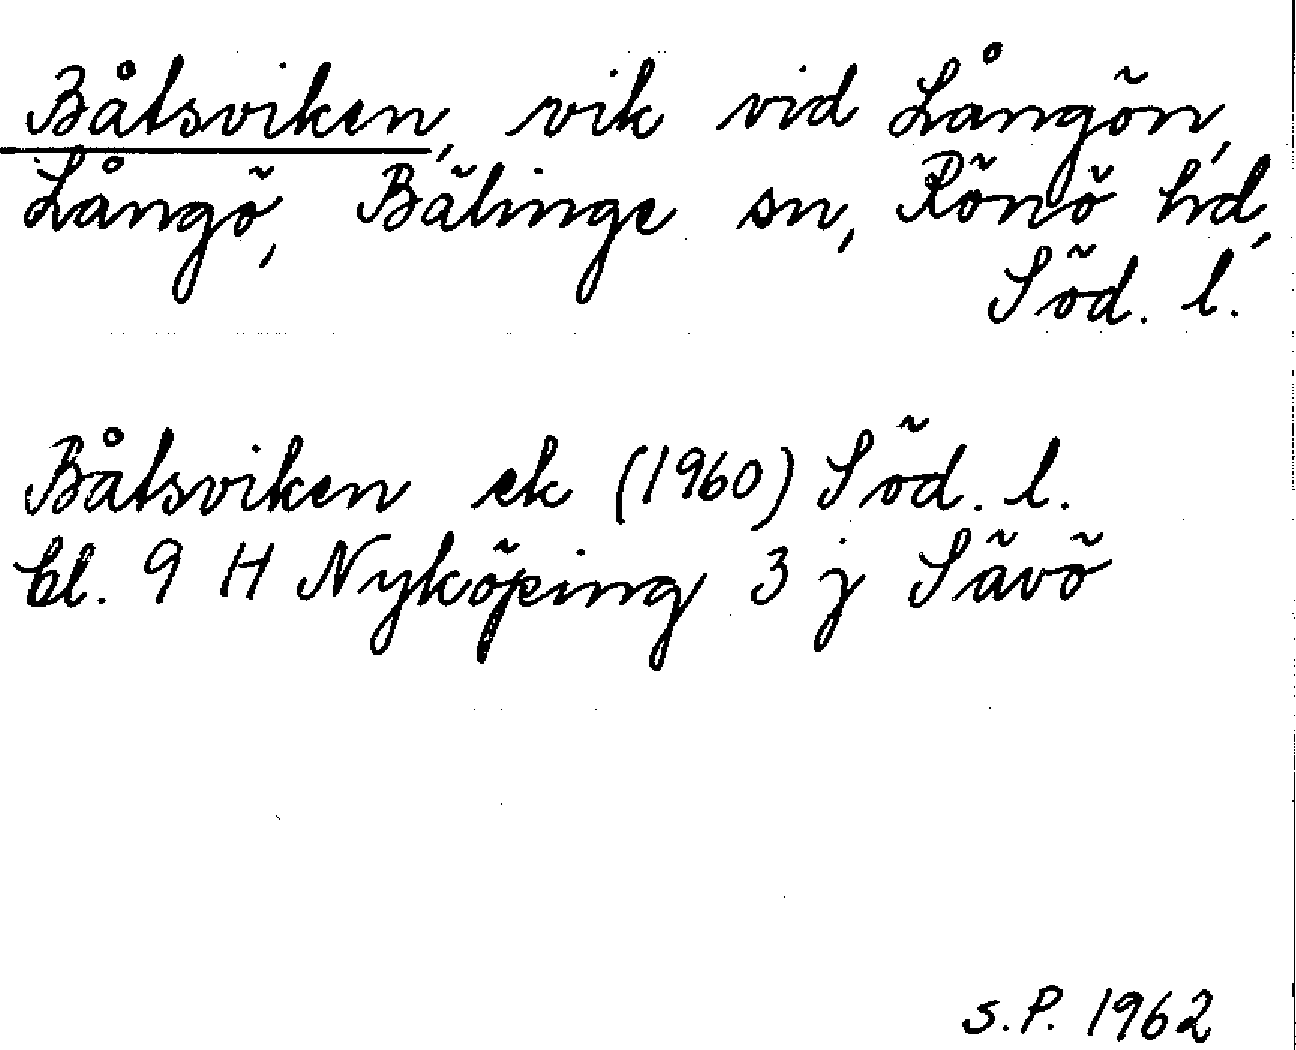 Båtsviken, vik vid Långön,
Långö, Bälinge sn, Rönö hd,
Söd. l.
Båtsviken ek (1960) Söd. l.
bl. 9 H Nyköping 3 j Sävö
S.P. 1962